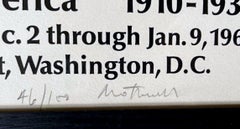 erica 1910-193
c. 2 through Jan. 9, 196
t, Washington, D.C.
46/100 Motherwell